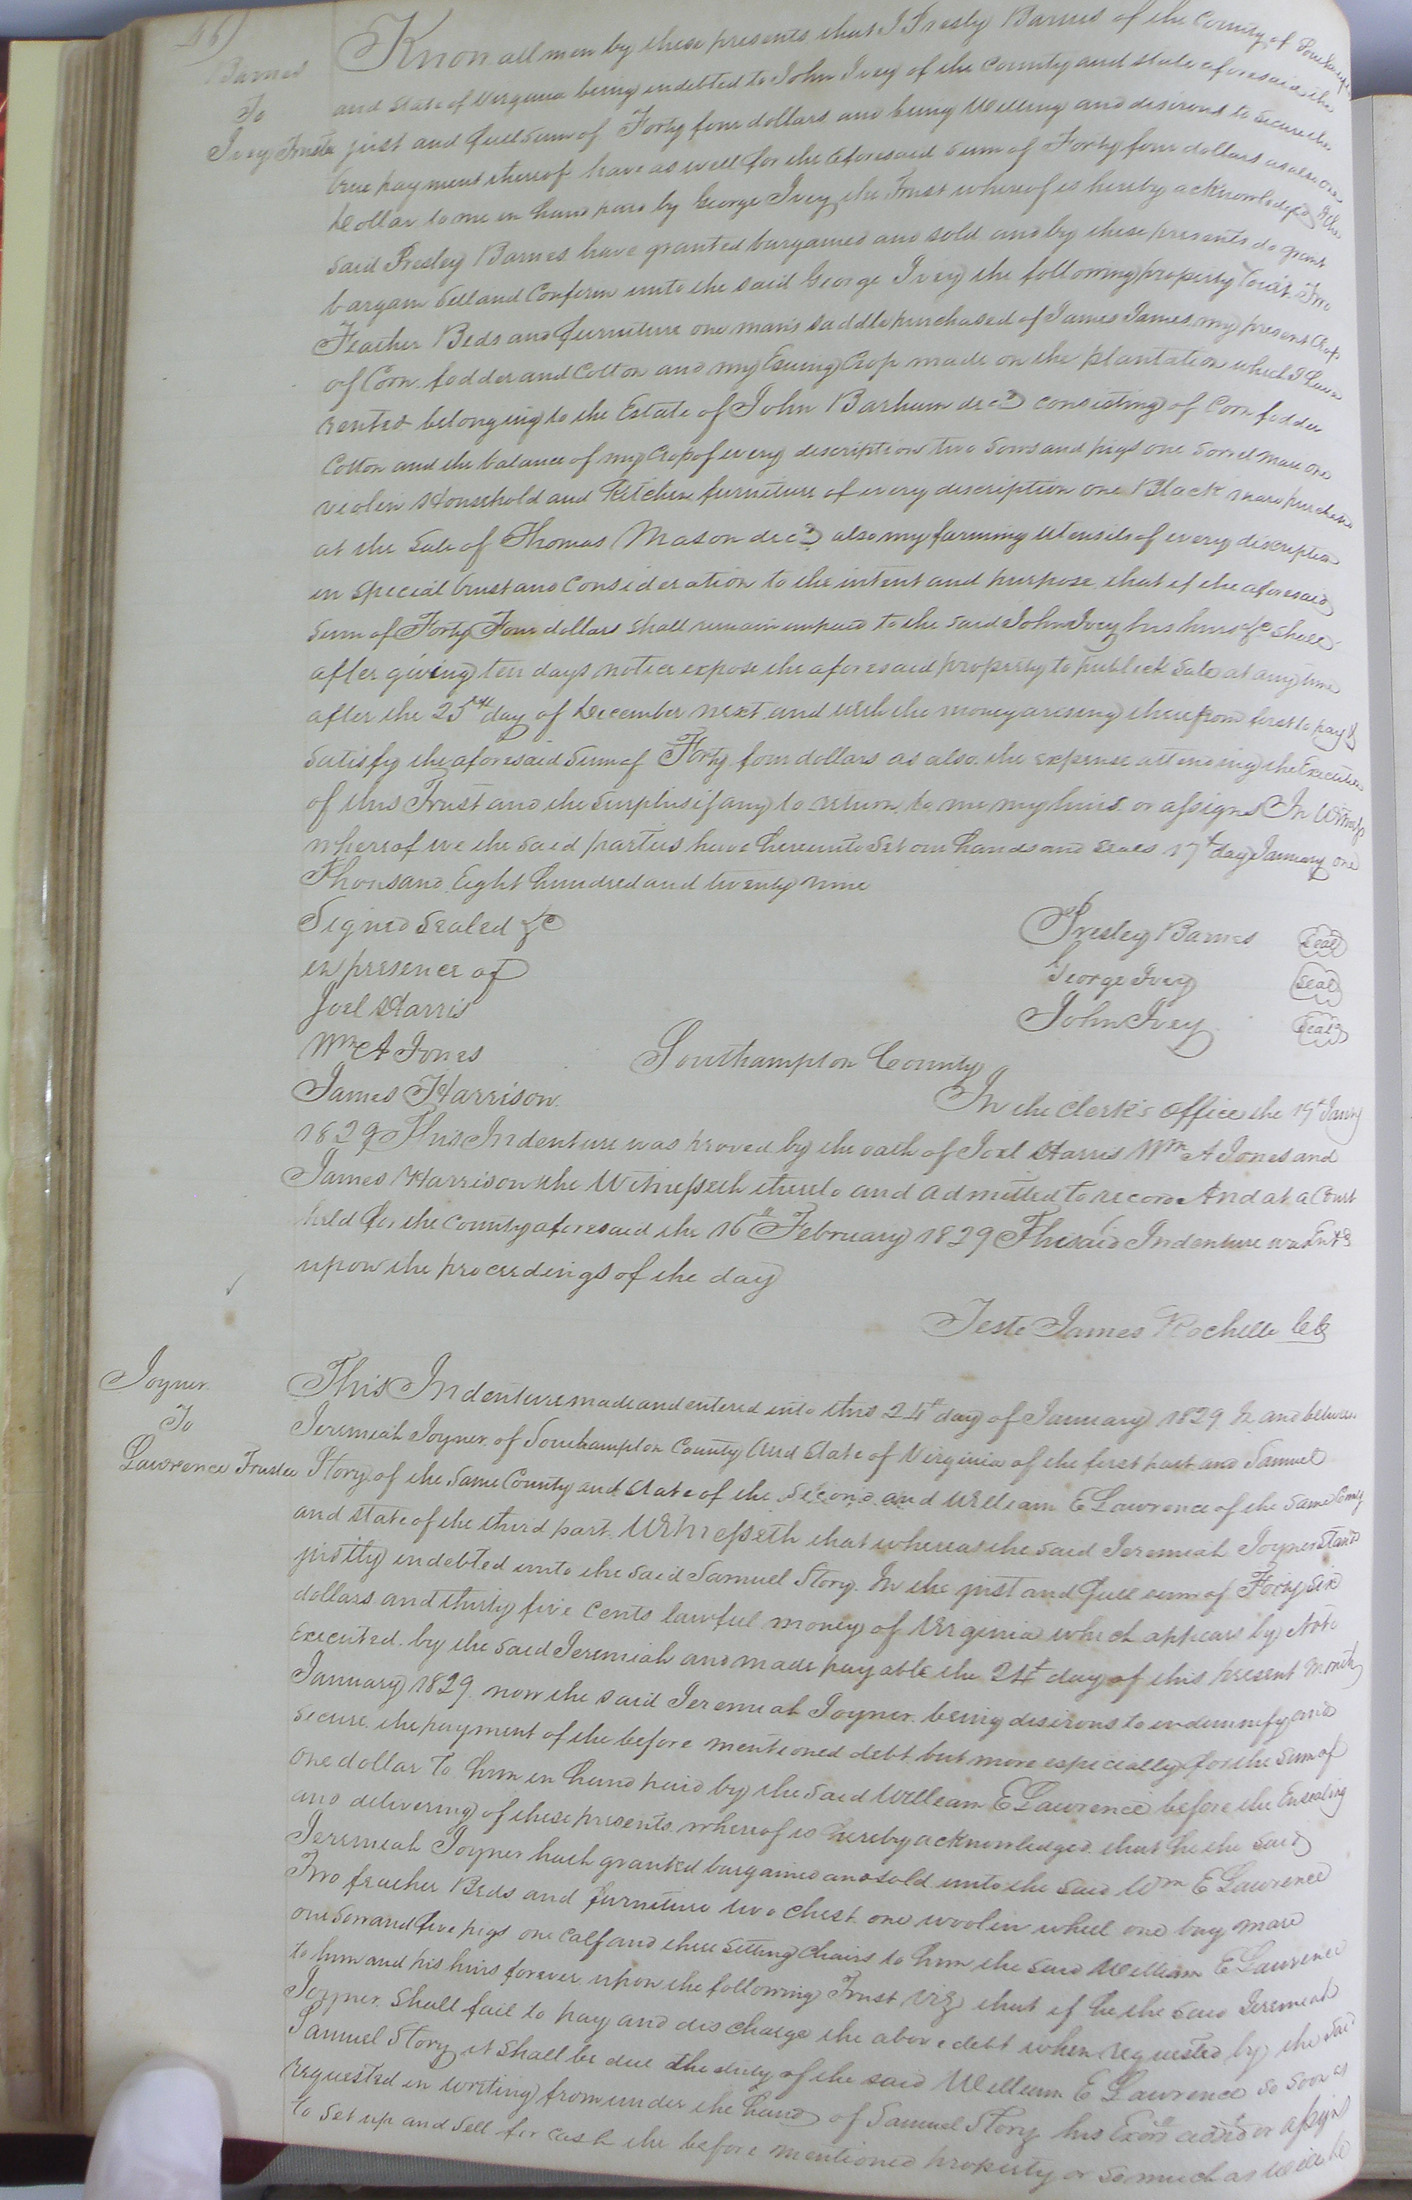 Barnes
To
Ivey Trustee
Know all men by these presents that I Presley Barnes of the County of Southampton
and state of Virginia being indebted to John Ivey of the County and state aforesaid in the
just and full sum of Forty four dollars and being Willing and desirous to secure the
true payment thereof have as well for the aforesaid sum of Forty four dollars as also one
Dollar to me in hand paid by George Ivey the Trust whereof is hereby acknowledged I the
said Presley Barnes have granted bargained and sold and by these presents do grant
bargain sell and Confirm unto the said George Ivey the following property Towit Two
Feather Beds and furniture one mans saddle purchased of James James, my present Crop
of Corn fodder and Cotton and my Ensuing Crop made on the plantation which I have
rented belonging to the Estate of John Barham decd consisting of Corn fodder
Cotton and the balance of my Crop of every description two Sows and pigs one Sorrel mare one
violin Household and Kitchen furniture of every description one Black mare purchased
at the Sale of Thomas Mason decd also my farming utensils of every description
in special trust and Consideration to the intent and purpose that if the aforesaid
Sum of Forty Four dollars shall remain unpaid to the said John Ivey his heirs &c shall
after giving ten days notice expose the aforesaid property to publick Sale at any time
after the 25th day of December next and with the money arising therefrom first to pay &
Satisfy the aforesaid Sum of Forty four dollars as also the expense attending the Execution
of this Trust and the Surplus if any to return to me my heirs or assigns In Witness
whereof we the said parties have hereunto Set our hands and Seals 17th day January one
Thousand Eight hundred and twenty nine
Signed Sealed &c
in presence of
Joel Harris
Wm A Jones
James Harrison
Presley Barnes Seal
George Ivey Seal
John Ivey Seal
Southampton County
In the Clerk's Office the 19th Janry
1829 This Indenture was proved by the oath of Joel Harris Wm A Jones and
James Harrison the Witnesseth thereto and admitted to record And at a Court
held for the County aforesaid the 16th February 1829 The said Indenture was Entd
upon the proceedings of the day
Teste James Rochelle Clk
Joyner
To
Lawrence Trustee
This Indenture made and entered into this 24th day of January 1829 by and between
Jeremiah Joyner of Southampton County And State of Virginia of the first part and Samuel
Story of the Same County and State of the Second and William E Lawrence of the Same County
and state of the third part Witnesseth that whereas the said Jeremiah Joyner Stands
justly indebted unto the said Samuel Story In the just and full sum of Forty Six
dollars and thirty five Cents lawful money of Virginia which appears by Note
Executed by the said Jeremiah and made payable the 24th day of this present month
January 1829 now the said Jeremiah Joyner being desirous to indemnify and
secure the payment of the before mentioned debt but more especially for the Sum of
one dollar to him in hand paid by the said William E Lawrence before the Ensealing
and delivering of these presents whereof is hereby acknowledged that he the said
Jeremiah Joyner hath granted bargained and sold unto the said Wm E Lawrence
Two feather Beds and furniture two chest one woolin wheel one bay mare
one sow and five pigs one Calf and three Setting Chairs to him the said William E Lawrence
to him and his heirs forever upon the following Trust Viz that if he the said Jeremiah
Joyner shall fail to pay and discharge the above debt when requested by the said
Samuel Story it shall be due the duty of the said William E Lawrence so soon as
requested in writing from under the hand of Samuel Story his Exors admd or assigns
to Set up and Sell for cash the before mentioned property or so much as will be